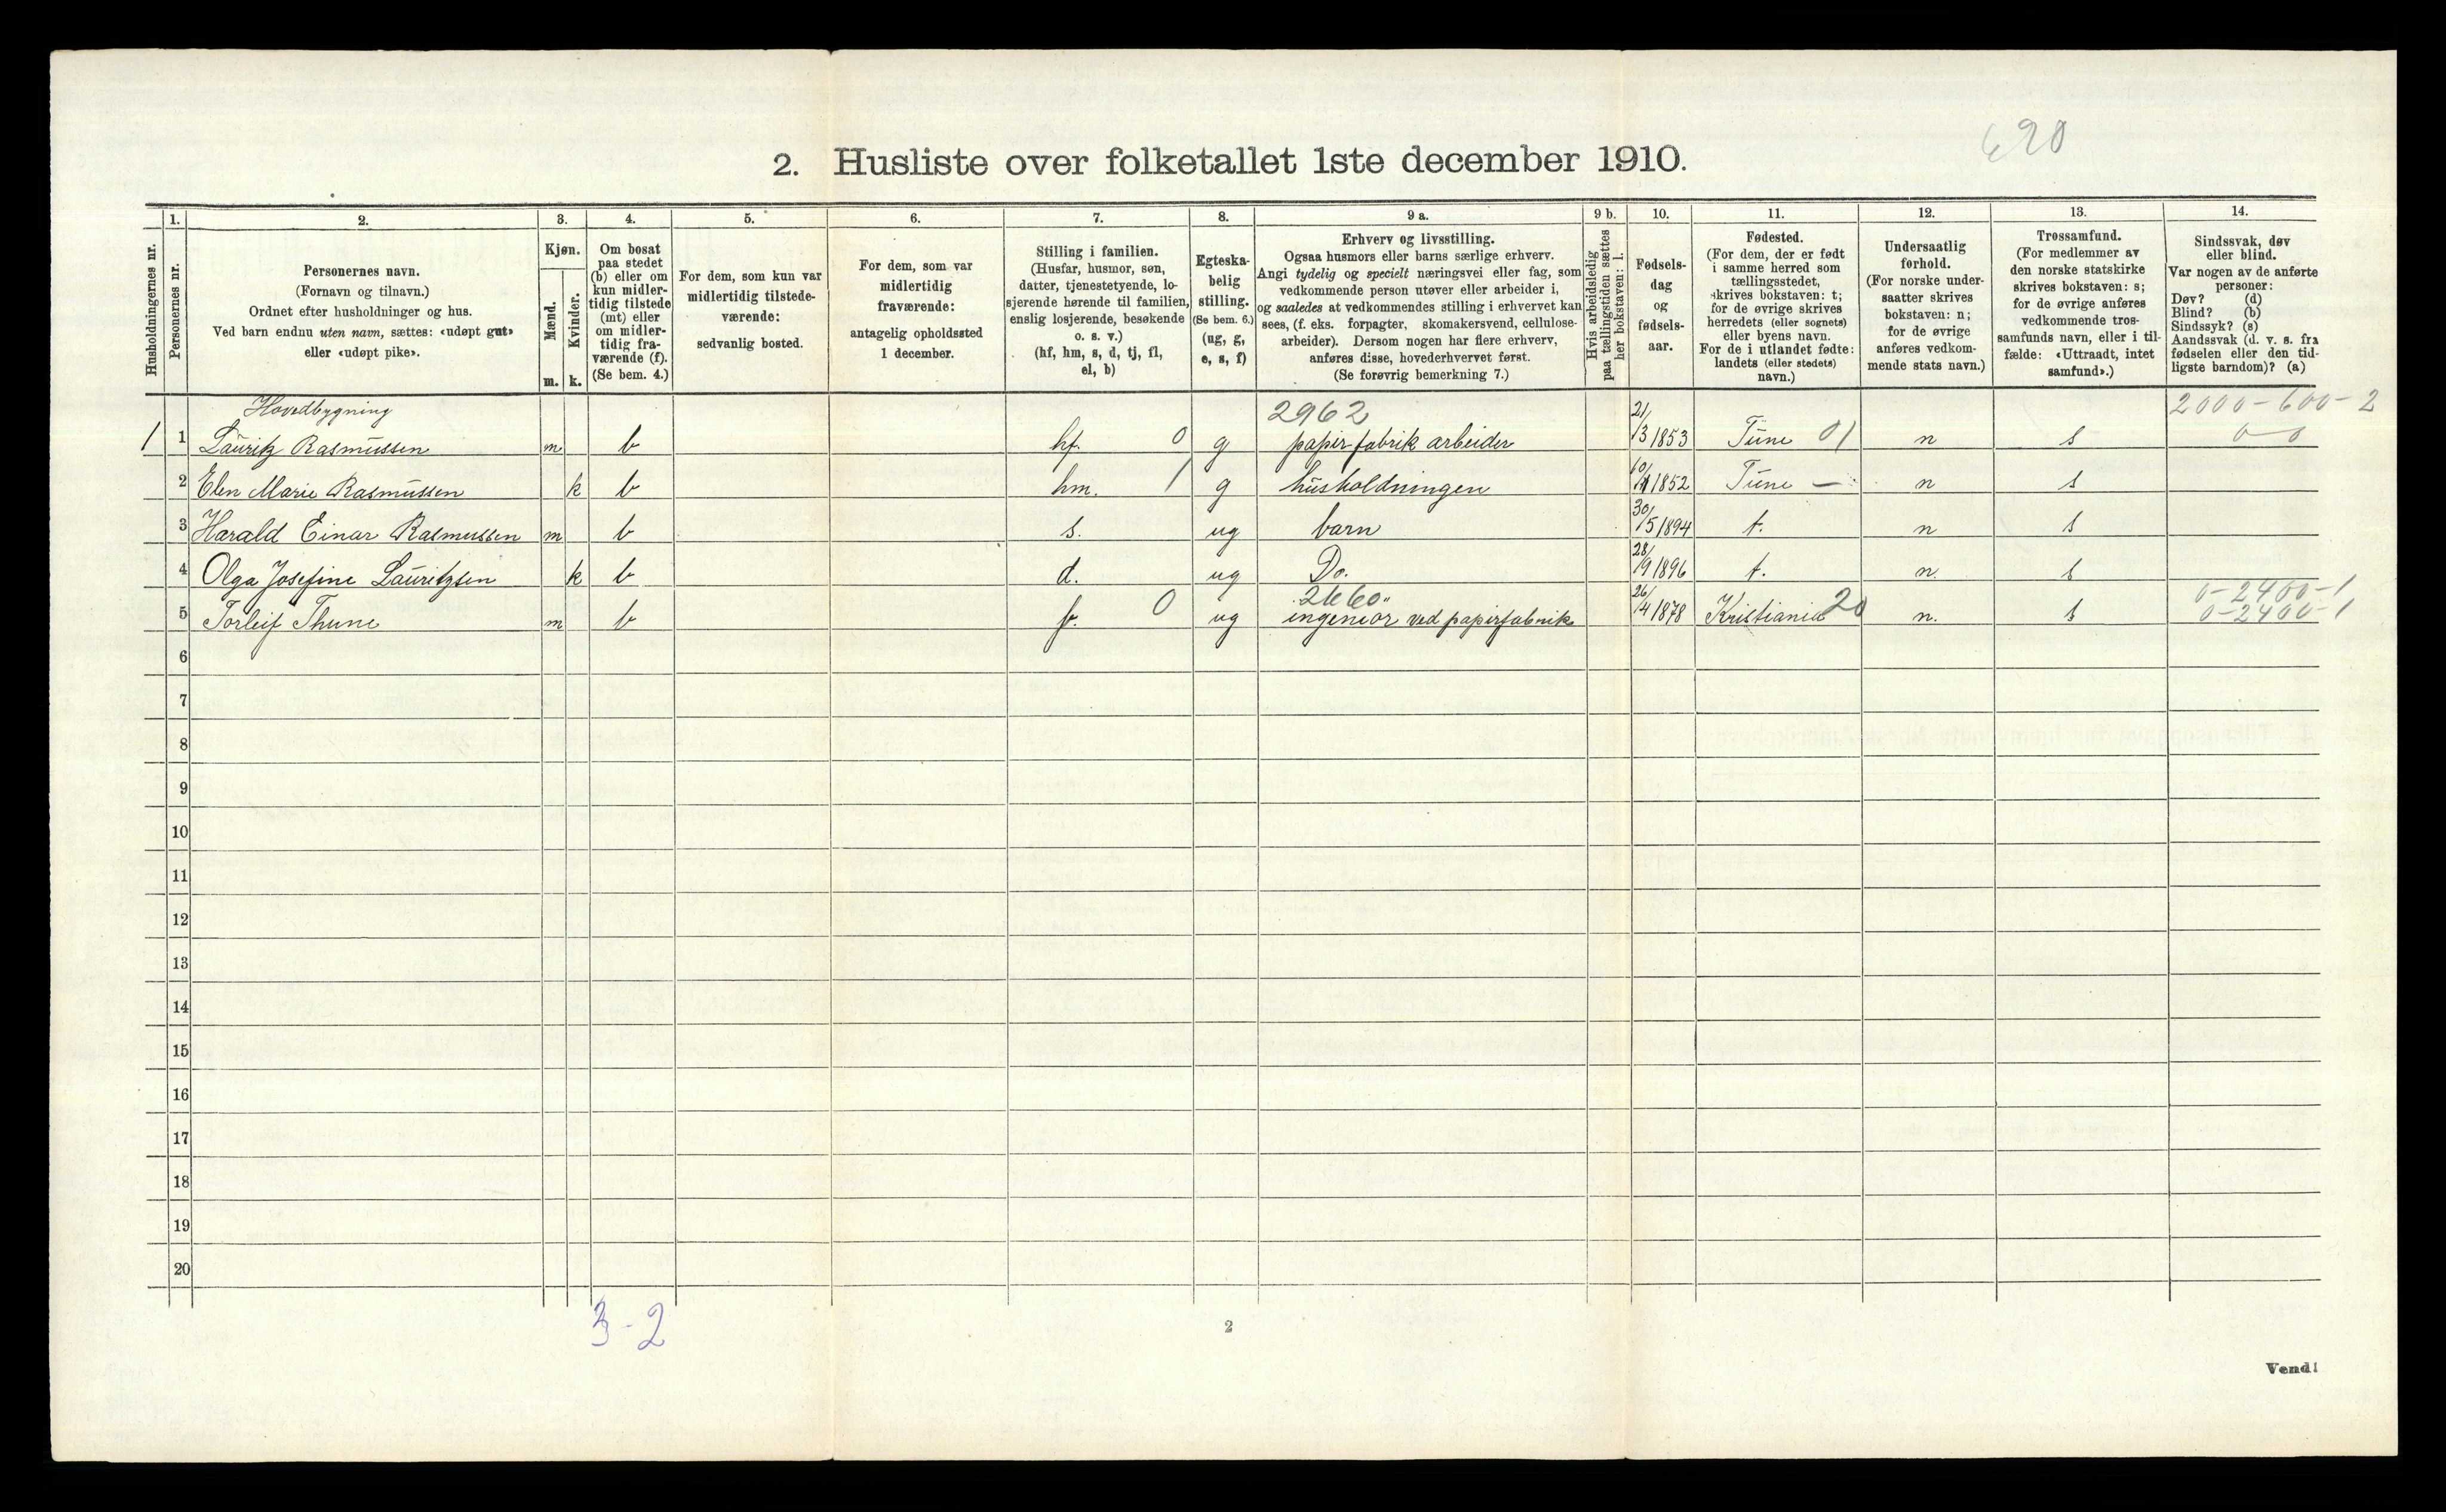 620
2. Husliste over folketallet 1ste december 1910.
Husholdningernes nr.
1.
Personernes nr.
2.
Personernes navn.
(Fornavn og tilnavn.)
Ordnet efter husholdninger og hus.
Ved barn endnu uten navn, sættes: «udøpt gut»
eller «udøpt pike».
3.
Kjøn.
Mænd.
Kvinder.
m. k.
4.
Om bosat
paa stedet
(b) eller om
kun midler-
tidig tilstede
(mt) eller
om midler-
tidig fra-
værende (f).
(Se bem. 4.)
5.
For dem, som kun var
midlertidig tilstede-
værende:
sedvanlig bosted.
6.
For dem, som var
midlertidig
fraværende:
antagelig opholdssted
1 december.
7.
Stilling i familien.
(Husfar, husmor, søn,
datter, tjenestetyende, lo-
sjerende hørende til familien,
enslig losjerende, besøkende
o. s. v.)
(hf, hm, s, d, tj, fl,
el, b)
8.
Egteska-
belig
stilling.
(Se bem. 6.)
(ug, g,
e, s, f)
9 a.
Erhverv og livsstilling.
Ogsaa husmors eller barns særlige erhverv.
Angi tydelig og specielt næringsvei eller fag, som
vedkommende person utøver eller arbeider i,
og saaledes at vedkommendes stilling i erhvervet kan
sees, (f. eks. forpagter, skomakersvend, cellulose-
arbeider). Dersom nogen har flere erhverv,
anføres disse, hovederhvervet først.
(Se forøvrig bemerkning 7.)
9 b.
Hvis arbeidsledig
paa tællingstiden sættes
her bokstaven: l.
10.
Fødsels-
dag
og
fødsels-
aar.
11.
Fødested.
(For dem, der er født
i samme herred som
tællingsstedet,
skrives bokstaven: t;
for de øvrige skrives
herredets (eller sognets)
eller byens navn.
For de i utlandet fødte:
landets (eller stedets)
navn.)
12.
Undersaatlig
forhold.
(For norske under-
saatter skrives
bokstaven: n;
for de øvrige
anføres vedkom-
mende stats navn.)
13.
Trossamfund.
(For medlemmer av
den norske statskirke
skrives bokstaven: s;
for de øvrige anføres
vedkommende tros-
samfunds navn, eller i til-
fælde: «Uttraadt, intet
samfund».)
14.
Sindssvak, døv
eller blind.
Var nogen av de anførte
personer:
Døv? (d)
Blind? (b)
Sindssyk? (s)
Aandssvak (d. v. s. fra
fødselen eller den tid-
ligste barndom)? (a)
Hovedbygning 2962 2000-600-2
1 1 Lauritz Rasmussen m b hf. 0 g papirfabrik arbeider 21/3 1853 Tune 01 n s 0-0
2 Elen Marie Rasmussen k b hm. 1 g husholdningen 1852 Tune — n s
3 Harald Einar Rasmussen m b s. ug barn 30/5 1894 t. n s
4 Olga Josefine Lauritzsen k b d. ug Do. 28/9 1896 t. n. s
2660 0-2400-1
5 Torleif Thune m b f. 0 ug ingeniør ved papirfabrik 26/4 1878 Kristiania 20 n. s 0-2400-1
6
7
8
9
10
11
12
13
14
15
16
17
18
19
20
3-2
2
Vend!